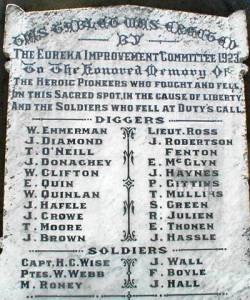 THIS TABLET WAS ERECTED
BY
THE EUREKA IMPROVEMENT COMMITTEE 1923
To The Honored Memory Of
THE HEROIC PIONEERS WHO FOUGHT AND FELL,
ON THIS SACRED SPOT, IN THE CAUSE OF LIBERTY,
AND THE SOLDIERS WHO FELL AT DUTY'S CALL.
DIGGERS
W. EMMERMAN LIEUT. ROSS
J. DIAMOND J. ROBERTSON
T. O'NEILL FENTON
J. DONAGHEY E. McGLYN
W. CLIFTON J. HAYNES
E. QUIN P. GITTINS
W. QUINLAN T. MULLINS
J. HAFELE S. GREEN
J. CROWE R. JULIEN
T. MOORE E. THONEN
J. BROWN J. HASSLE
SOLDIERS
CAPT. H.C. WISE J. WALL
PTES. W. WEBB F. BOYLE
M. RONEY J. HALL